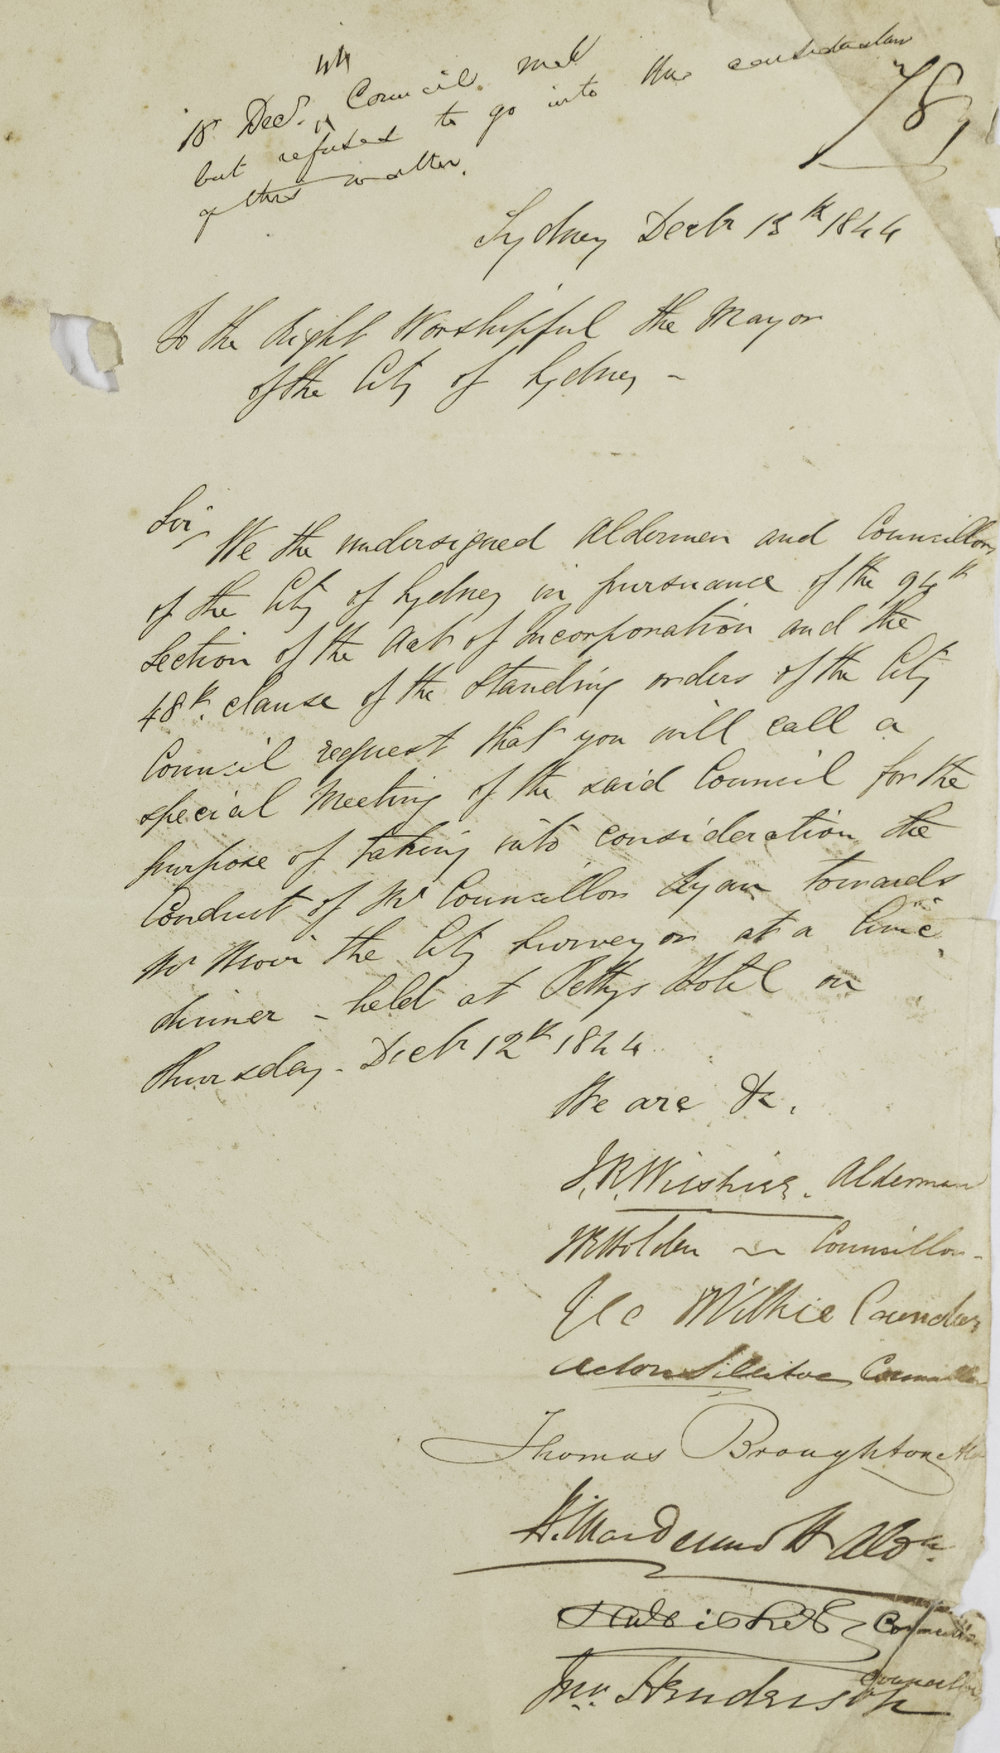 18 Decr. Council met
but refused to go into the consideration
of this matter.
789
Sydney Decbr 13th 1844
To the Right Worshipful the Mayor
of the City of Sydney -
Sir,
We the undersigned Aldermen and Councillors
of the City of Sydney in pursuance of the 94th
Section of the Act of Incorporation and the
48th. Clause of the Standing orders of the City
Council request that you will call a
special Meeting of the said Council for the
purpose of taking into consideration the
Conduct of Mr Councillor Ryan towards
Mr Moir the City Surveyor at a Civic
dinner - held at Pettys Hotel on
Thursday - Decbr 12th 1844
We are &c.
J. R. Wilshire. Alderman
Holden Councillor -
Wilkie
Acton Sillitoe
Thomas Broughton
H. Macdermott Aldn
Jno. Henderson
Councillor